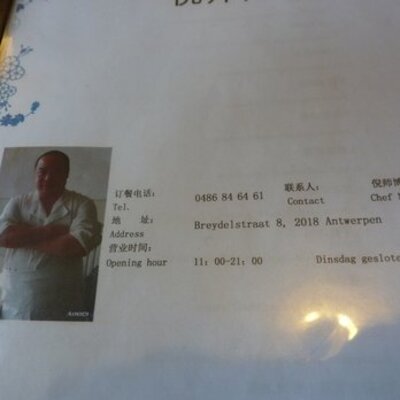 订餐电话： 0486 84 64 61 联系人： 倪师
Tel. Contact Chef
地 址： Breydelstraat 8, 2018 Antwerpen
Address
营业时间：
Opening hour 11: 00-21: 00 Dinsdag geslote